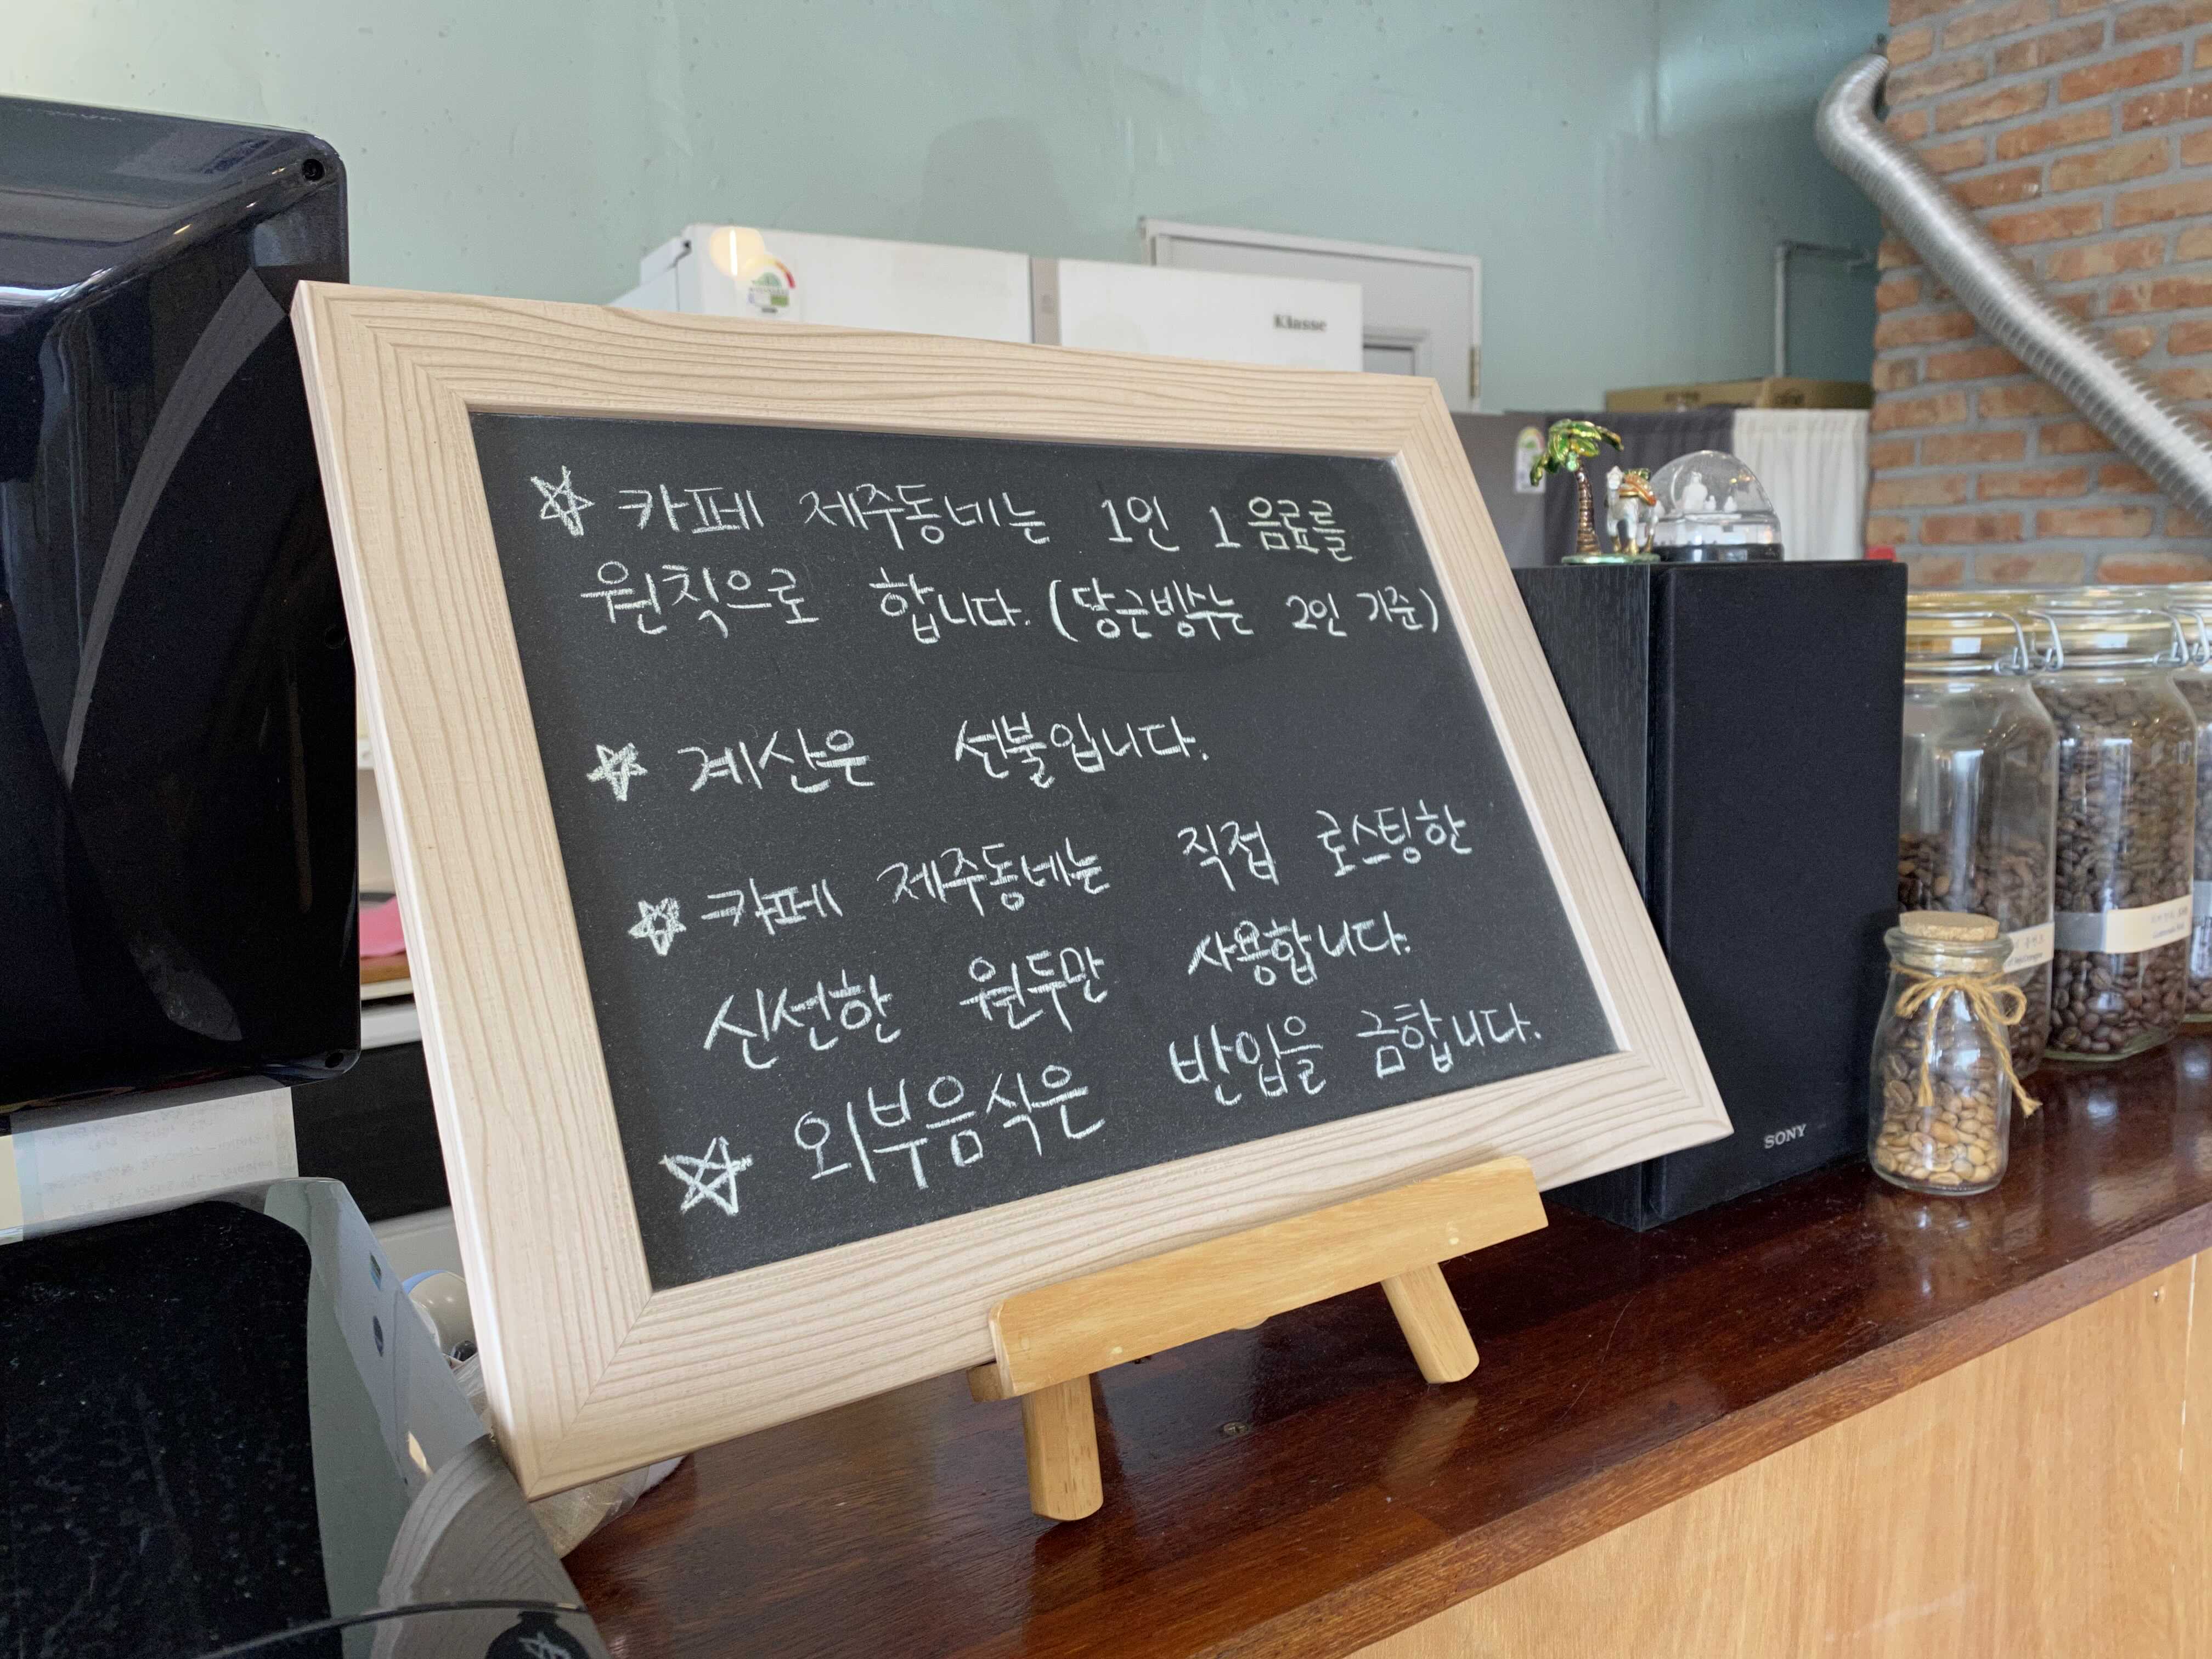 Klasse
☆ 카페 제주동네는 1인 1음료를
원칙으로 합니다. (당근빙수는 2인 기준)
☆ 계산은 선불입니다.
☆ 카페 제주동네는 직접 로스팅한
신선한 원두만 사용합니다.
☆ 외부음식은 반입을 금합니다.
SONY